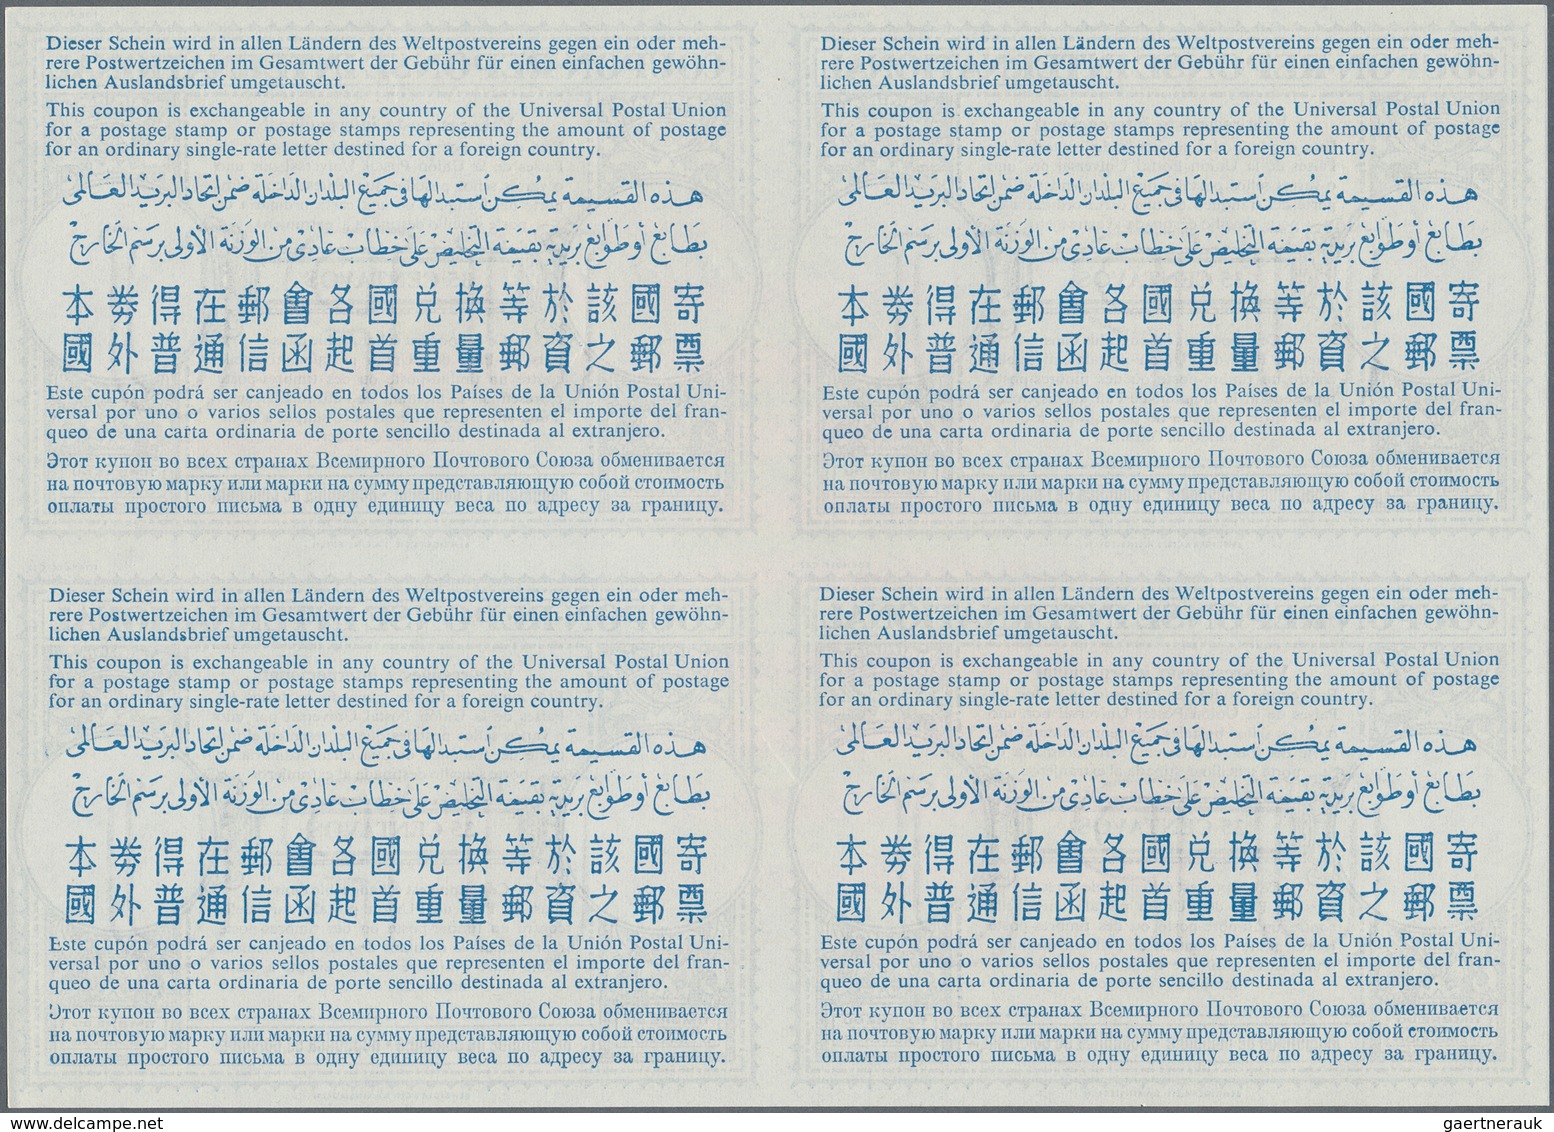 Dieser Schein wird in allen Ländern des Weltpostvereins gegen ein oder meh-
rere Postwertzeichen im Gesamtwert der Gebühr für einen einfachen gewöhn-
lichen Auslandsbrief umgetauscht.
This coupon is exchangeable in any country of the Universal Postal Union
for a postage stamp or postage stamps representing the amount of postage
for an ordinary single-rate letter destined for a foreign country.
هذه القسيمة يمكن استبدالها في جميع البلدان الداخلة ضمن اتحاد البريد العالمي
بطابع أو طوابع بريدية بقيمة التخليص على خطاب عادي من الوزنة الأولى برسم الخارج
本券得在郵會各國兌換等於該國寄
國外普通信函起首重量郵資之郵票
Este cupón podrá ser canjeado en todos los Países de la Unión Postal Uni-
versal por uno o varios sellos postales que representen el importe del fran-
queo de una carta ordinaria de porte sencillo destinada al extranjero.
Этот купон во всех странах Всемирного Почтового Союза обменивается
на почтовую марку или марки на сумму представляющую собой стоимость
оплаты простого письма в одну единицу веса по адресу за границу.
Dieser Schein wird in allen Ländern des Weltpostvereins gegen ein oder meh-
rere Postwertzeichen im Gesamtwert der Gebühr für einen einfachen gewöhn-
lichen Auslandsbrief umgetauscht.
This coupon is exchangeable in any country of the Universal Postal Union
for a postage stamp or postage stamps representing the amount of postage
for an ordinary single-rate letter destined for a foreign country.
هذه القسيمة يمكن استبدالها في جميع البلدان الداخلة ضمن اتحاد البريد العالمي
بطابع أو طوابع بريدية بقيمة التخليص على خطاب عادي من الوزنة الأولى برسم الخارج
本券得在郵會各國兌換等於該國寄
國外普通信函起首重量郵資之郵票
Este cupón podrá ser canjeado en todos los Países de la Unión Postal Uni-
versal por uno o varios sellos postales que representen el importe del fran-
queo de una carta ordinaria de porte sencillo destinada al extranjero.
Этот купон во всех странах Всемирного Почтового Союза обменивается
на почтовую марку или марки на сумму представляющую собой стоимость
оплаты простого письма в одну единицу веса по адресу за границу.
Dieser Schein wird in allen Ländern des Weltpostvereins gegen ein oder meh-
rere Postwertzeichen im Gesamtwert der Gebühr für einen einfachen gewöhn-
lichen Auslandsbrief umgetauscht.
This coupon is exchangeable in any country of the Universal Postal Union
for a postage stamp or postage stamps representing the amount of postage
for an ordinary single-rate letter destined for a foreign country.
هذه القسيمة يمكن استبدالها في جميع البلدان الداخلة ضمن اتحاد البريد العالمي
بطابع أو طوابع بريدية بقيمة التخليص على خطاب عادي من الوزنة الأولى برسم الخارج
本券得在郵會各國兌換等於該國寄
國外普通信函起首重量郵資之郵票
Este cupón podrá ser canjeado en todos los Países de la Unión Postal Uni-
versal por uno o varios sellos postales que representen el importe del fran-
queo de una carta ordinaria de porte sencillo destinada al extranjero.
Этот купон во всех странах Всемирного Почтового Союза обменивается
на почтовую марку или марки на сумму представляющую собой стоимость
оплаты простого письма в одну единицу веса по адресу за границу.
Dieser Schein wird in allen Ländern des Weltpostvereins gegen ein oder meh-
rere Postwertzeichen im Gesamtwert der Gebühr für einen einfachen gewöhn-
lichen Auslandsbrief umgetauscht.
This coupon is exchangeable in any country of the Universal Postal Union
for a postage stamp or postage stamps representing the amount of postage
for an ordinary single-rate letter destined for a foreign country.
هذه القسيمة يمكن استبدالها في جميع البلدان الداخلة ضمن اتحاد البريد العالمي
بطابع أو طوابع بريدية بقيمة التخليص على خطاب عادي من الوزنة الأولى برسم الخارج
本券得在郵會各國兌換等於該國寄
國外普通信函起首重量郵資之郵票
Este cupón podrá ser canjeado en todos los Países de la Unión Postal Uni-
versal por uno o varios sellos postales que representen el importe del fran-
queo de una carta ordinaria de porte sencillo destinada al extranjero.
Этот купон во всех странах Всемирного Почтового Союза обменивается
на почтовую марку или марки на сумму представляющую собой стоимость
оплаты простого письма в одну единицу веса по адресу за границу.
delcampe.net
gaertnerauk